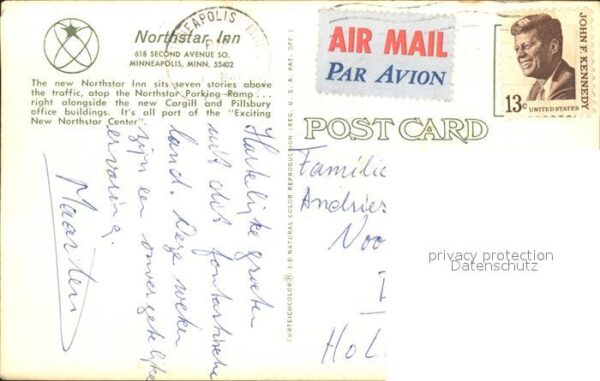 Northstar Inn
618 SECOND AVENUE SO.
MINNEAPOLIS, MINN. 55402
The new Northstar Inn sits seven stories above
the traffic, atop the Northstar Parking Ramp . . .
right alongside the new Cargill and Pillsbury
office buildings. It's all part of the "Exciting
New Northstar Center".
EAPOLIS
AIR MAIL
PAR AVION
JOHN F. KENNEDY
13c UNITED STATES
POST CARD
CURTEICHCOLOR® 3-D NATURAL COLOR REPRODUCTION (REG. U.S.A. PAT. OFF.)
Hartelijke groeten
uit dit fantastische
land. Deze weken
zijn een onvergetelijke
ervaring.
Maarten
Famili
Andries
Noo
Hol
privacy protection
Datenschutz